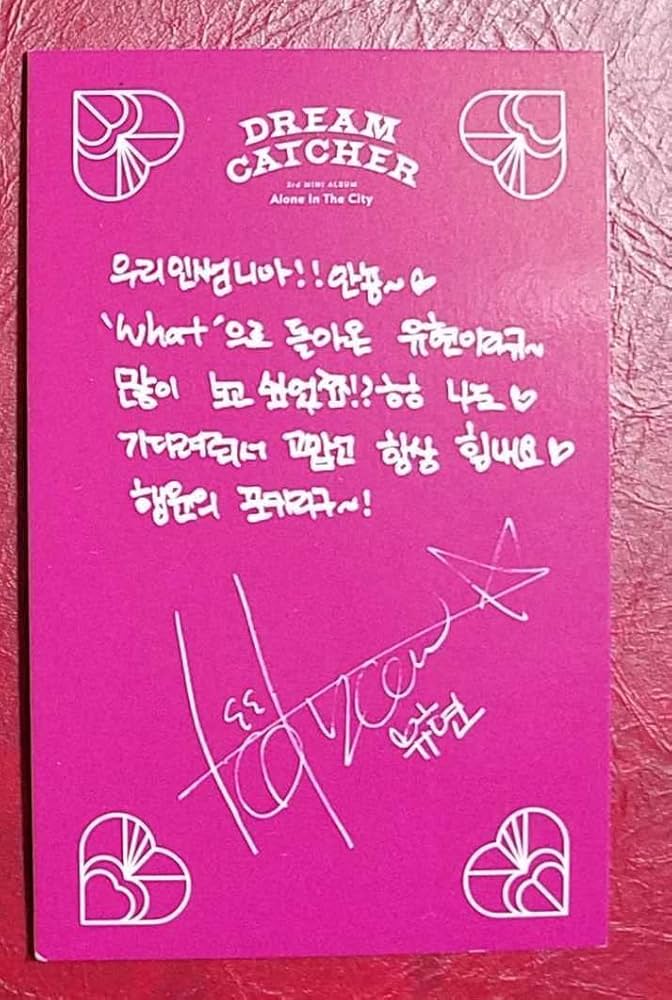 DREAM
CATCHER
3rd MINI ALBUM
Alone In The City
우리인썸니아!! 안뇽~♡
'What'으로 돌아온 유현이라규~
많이 보고 싶었쬬!? ㅎㅎ 나도♡
기다려줘서 고맙고 항상 힘내요♡
행운의 포카라규~!
유현